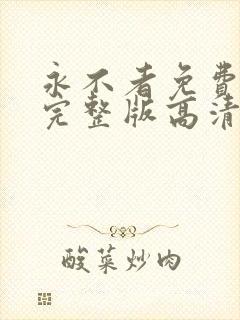 永不者免費
完整版高清
酸菜炒肉